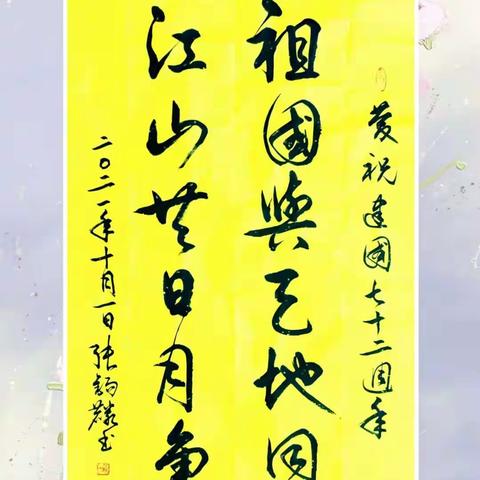 慶祝建國七十二週年
祖國與天地同
江山共日月争
二〇二一年十月一日张麟书